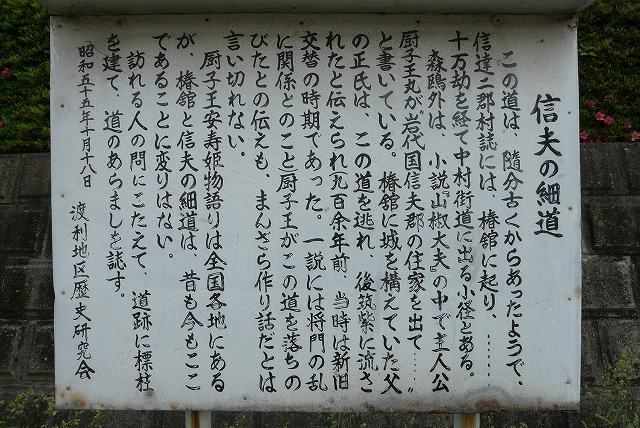 信夫の細道
この道は、随分古くからあったようで、
信達二郡村誌には、椿舘に起り、……
十万劫を経て中村街道に出る小径とある。
森鴎外は、小説『山椒大夫』の中で主人公
厨子王丸が岩代国信夫郡の住家を出て……〟
と書いている。椿舘に城を構えていた父
の正氏は、この道を逃れ、後筑紫に流さ
れたと伝えられ(九百余年前)当時は新旧
交替の時期であった。一説には将門の乱
に関係とのこと厨子王がこの道を落ちの
びたとの伝えも、まんざら作り話だとは
言い切れない。
厨子王安寿姫物語りは全国各地にある
が、椿舘と信夫の細道は、昔も今もここ
であることに変りはない。
訪れる人の問にこたえて、道跡に標柱
を建て、道のあらましを誌す。
昭和五十五年十月十八日
渡利地区歴史研究会